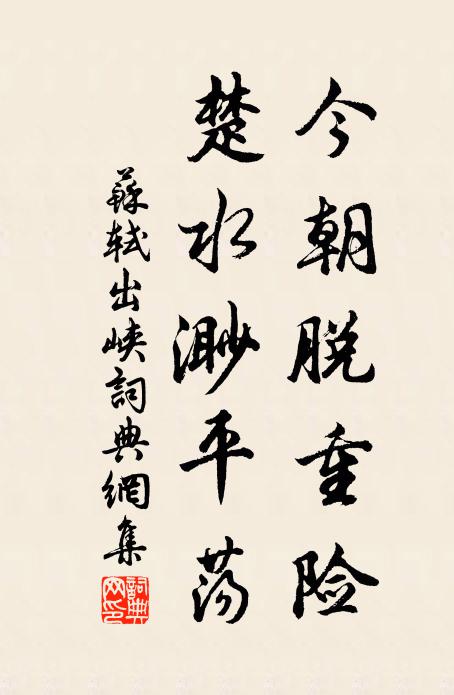 今朝脱重险
楚水渺平荡
蘇軾出峽詞典網集
詞典网印